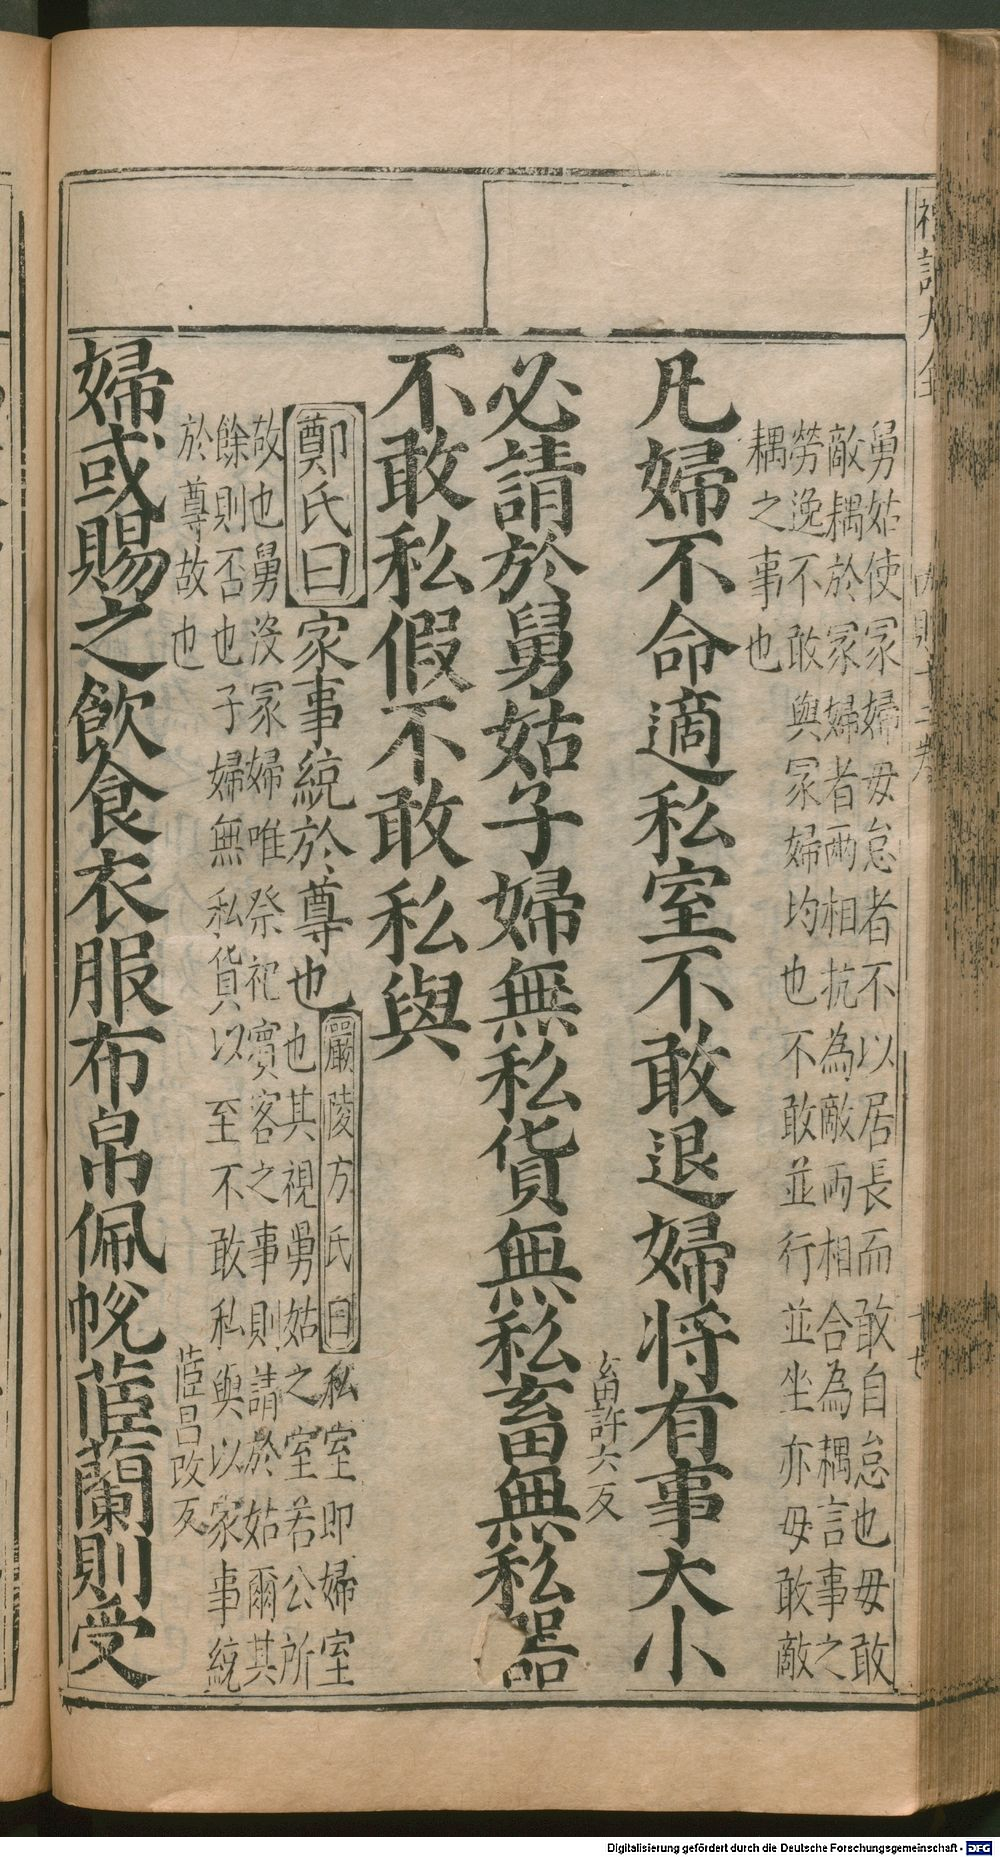 禮記大全
内則十二卷
十七
舅姑使冢婦毋怠者不以居長而敢自怠也毋敢
敵耦於冢婦者兩相抗為敵兩相合為耦言事之
勞逸不敢與冢婦均也不敢並行並坐亦毋敢敵
耦之事也
凡婦不命適私室不敢退婦將有事大小
必請於舅姑子婦無私貨無私畜無私器
畜許六反
不敢私假不敢私與
鄭氏曰家事統於尊也
嚴陵方氏曰私室即婦室
也其視舅姑之室若公所
敬也舅没冢婦唯祭祀賓客之事則請於姑爾其
餘則否也子婦無私貨以至不敢私與以家事統
於尊故也
婦或賜之飲食衣服布帛佩帨茝蘭則受
茝昌改反
Digitalisierung gefördert durch die Deutsche Forschungsgemeinschaft - DFG